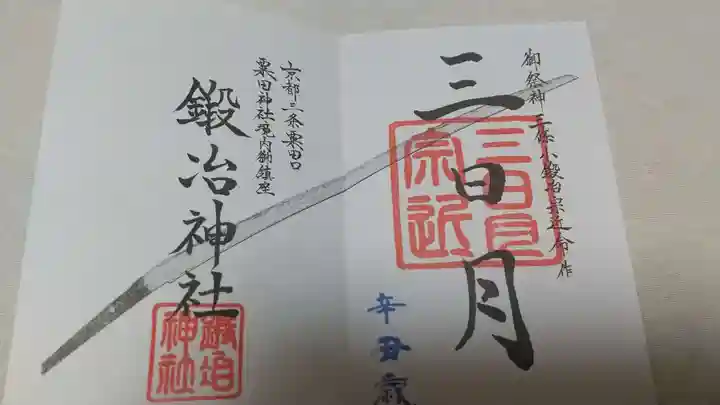 御祭神三條小鍛冶宗近命作
三日月
三日月
宗近
辛丑歳
京都三条粟田口
粟田神社境内御鎮座
鍛冶神社
鍛冶
神社